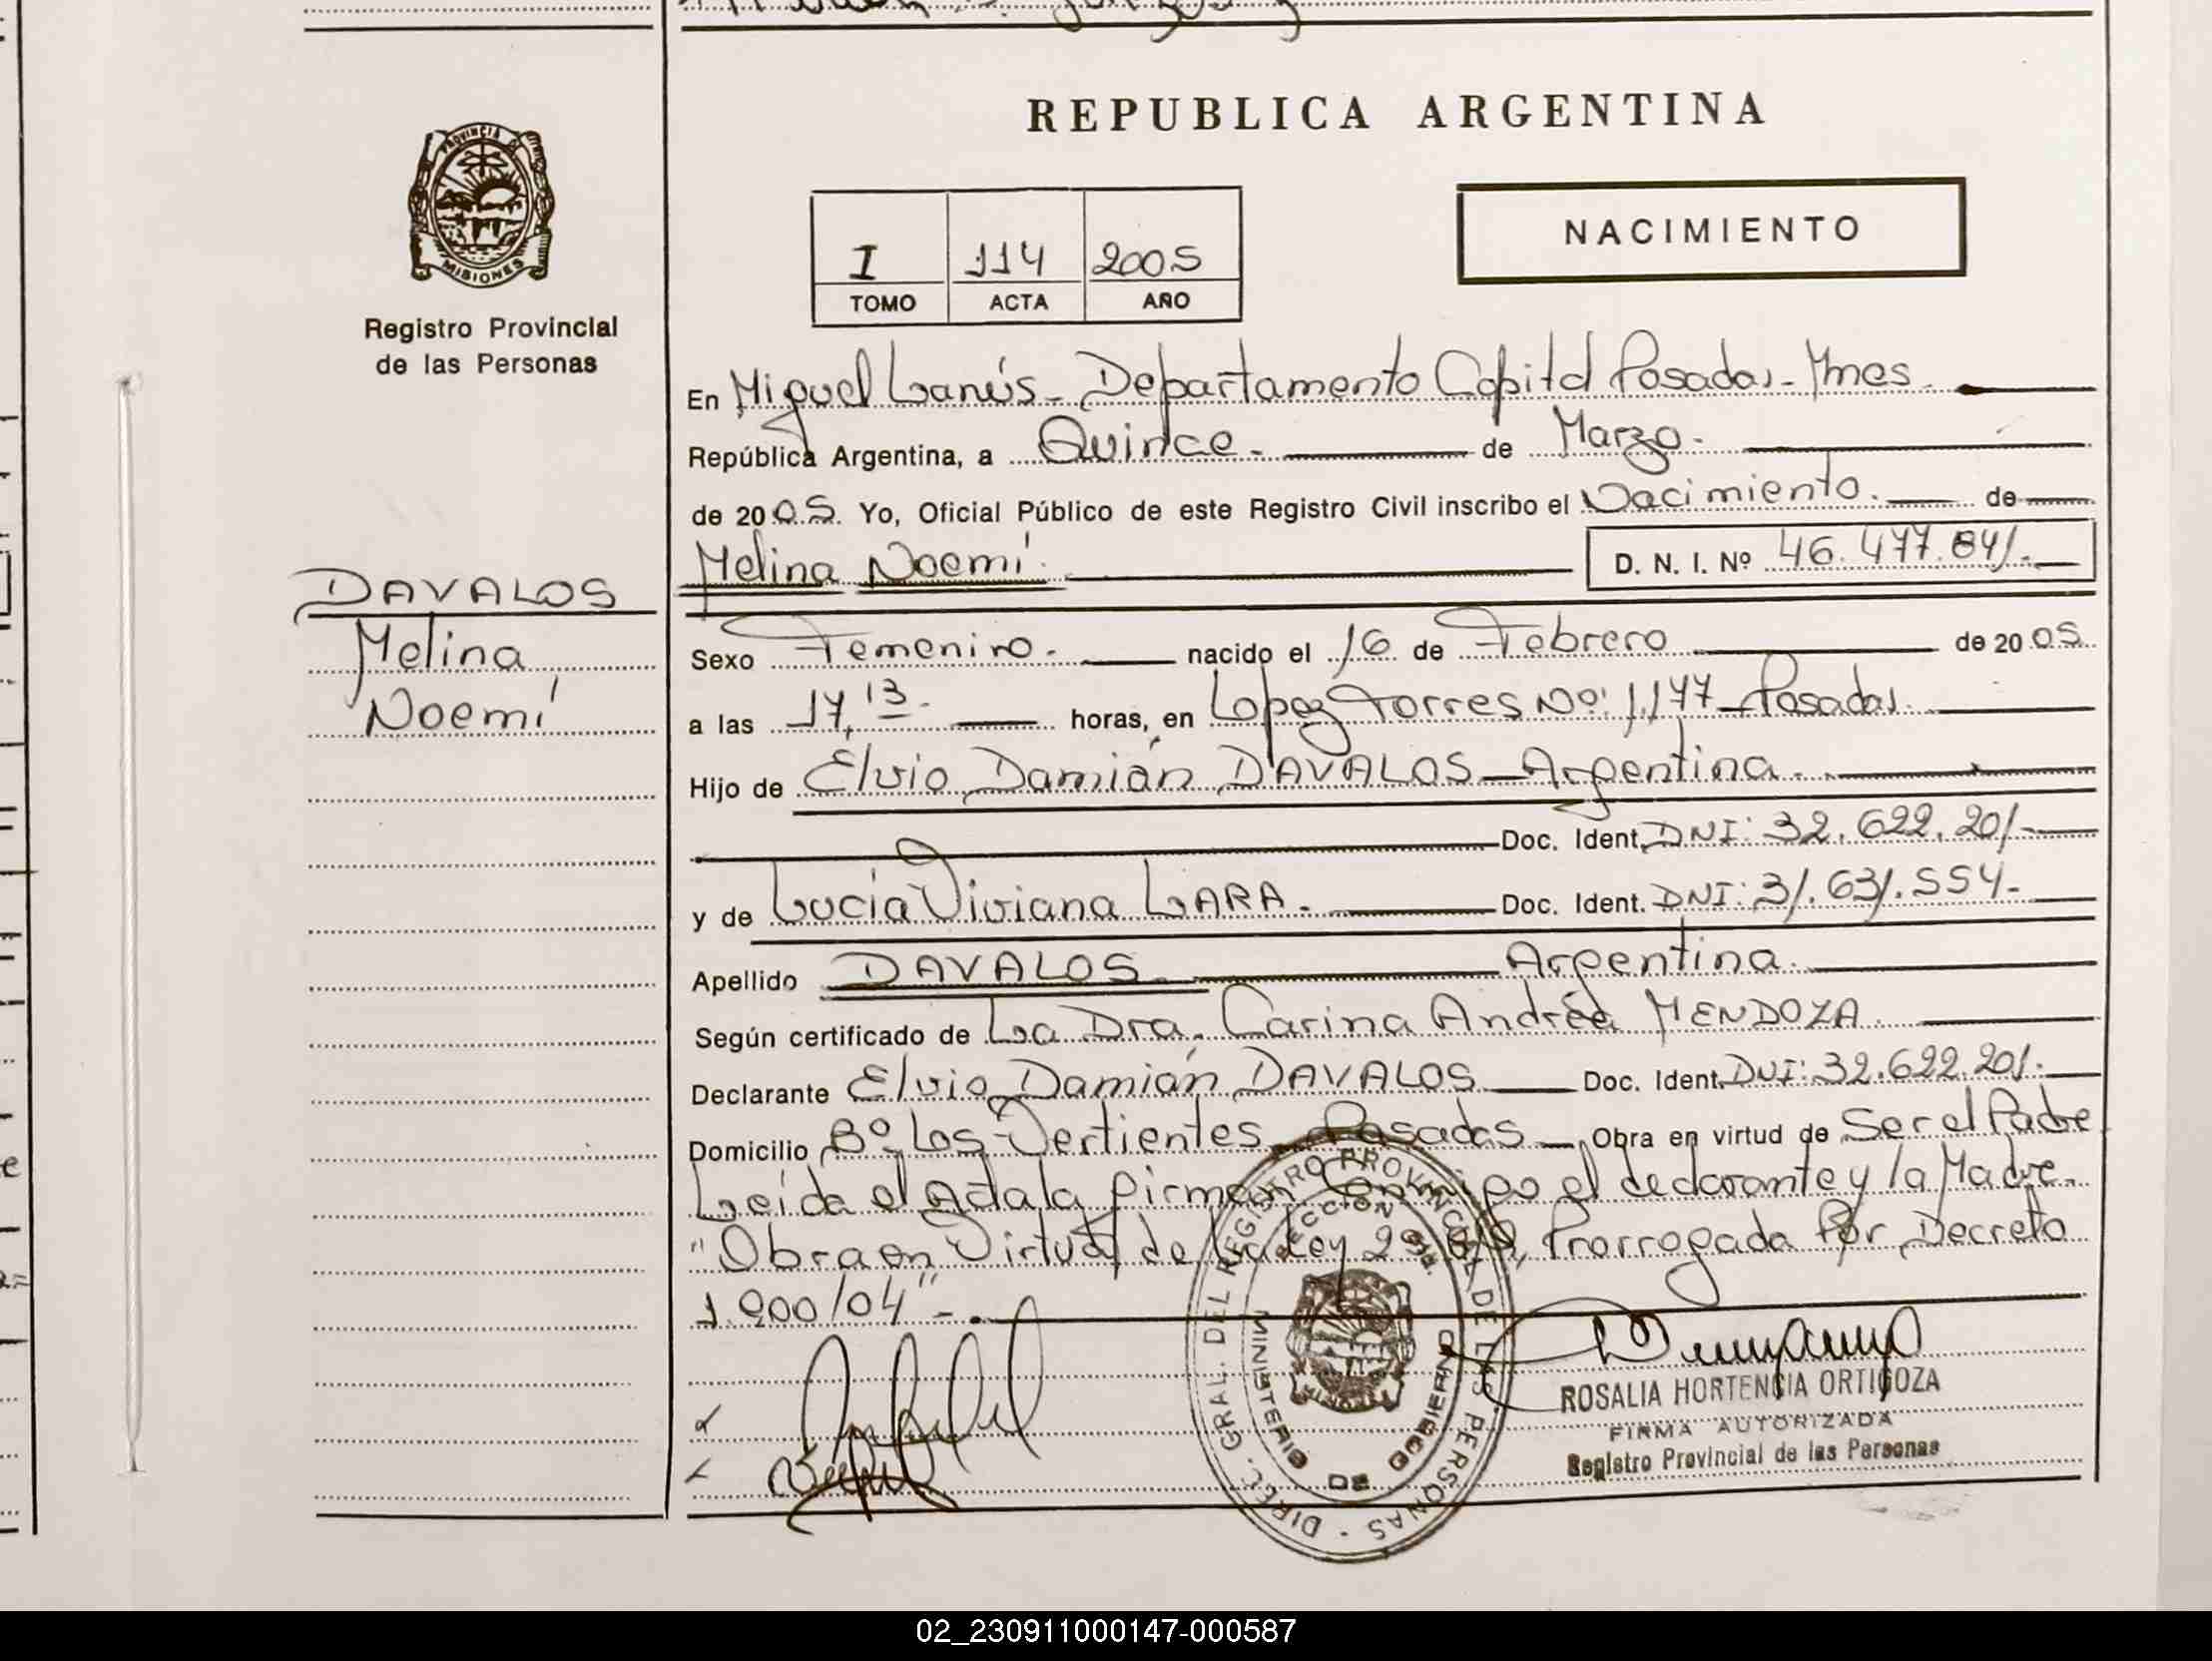 REPUBLICA ARGENTINA
PROVINCIA DE
MISIONES
Registro Provincial
de las Personas
I 114 2005
TOMO ACTA AÑO
NACIMIENTO
En Miguel Lanús - Departamento Capital Posadas - Mnes.
República Argentina, a Quince. de Marzo.
de 2005. Yo, Oficial Público de este Registro Civil inscribo el Nacimiento. de
Melina Noemí. D. N. I. Nº 46.477.841.
DAVALOS
Melina
Noemí
Sexo Femenino. nacido el 16 de Febrero de 2005.
a las 17,13 horas, en Lopez Torres Nº: 1.177 - Posadas.
Hijo de Elvio Damián DAVALOS - Argentina.
Doc. Ident. DNI: 32.622.201-
y de Lucía Viviana LARA. Doc. Ident. DNI: 31.631.554-
Apellido DAVALOS. Argentina.
Según certificado de La Dra. Carina Andréa MENDOZA.
Declarante Elvio Damián DAVALOS Doc. Ident. DNI: 32.622.201.
Domicilio Bº Las Vertientes - Posadas Obra en virtud de Ser el Padre
Leída el Acta la firman Conmigo el declarante y la Madre.
"Obra en Virtud de La Ley Prorrogada Por Decreto
1.900/04"-.
DIREC. GRAL. DEL REGISTRO PROVINCIAL DE LAS PERSONAS
MINISTERIO DE GOBIERNO
ROSALIA HORTENCIA ORTIGOZA
FIRMA AUTORIZADA
Registro Provincial de las Personas
02_230911000147-000587